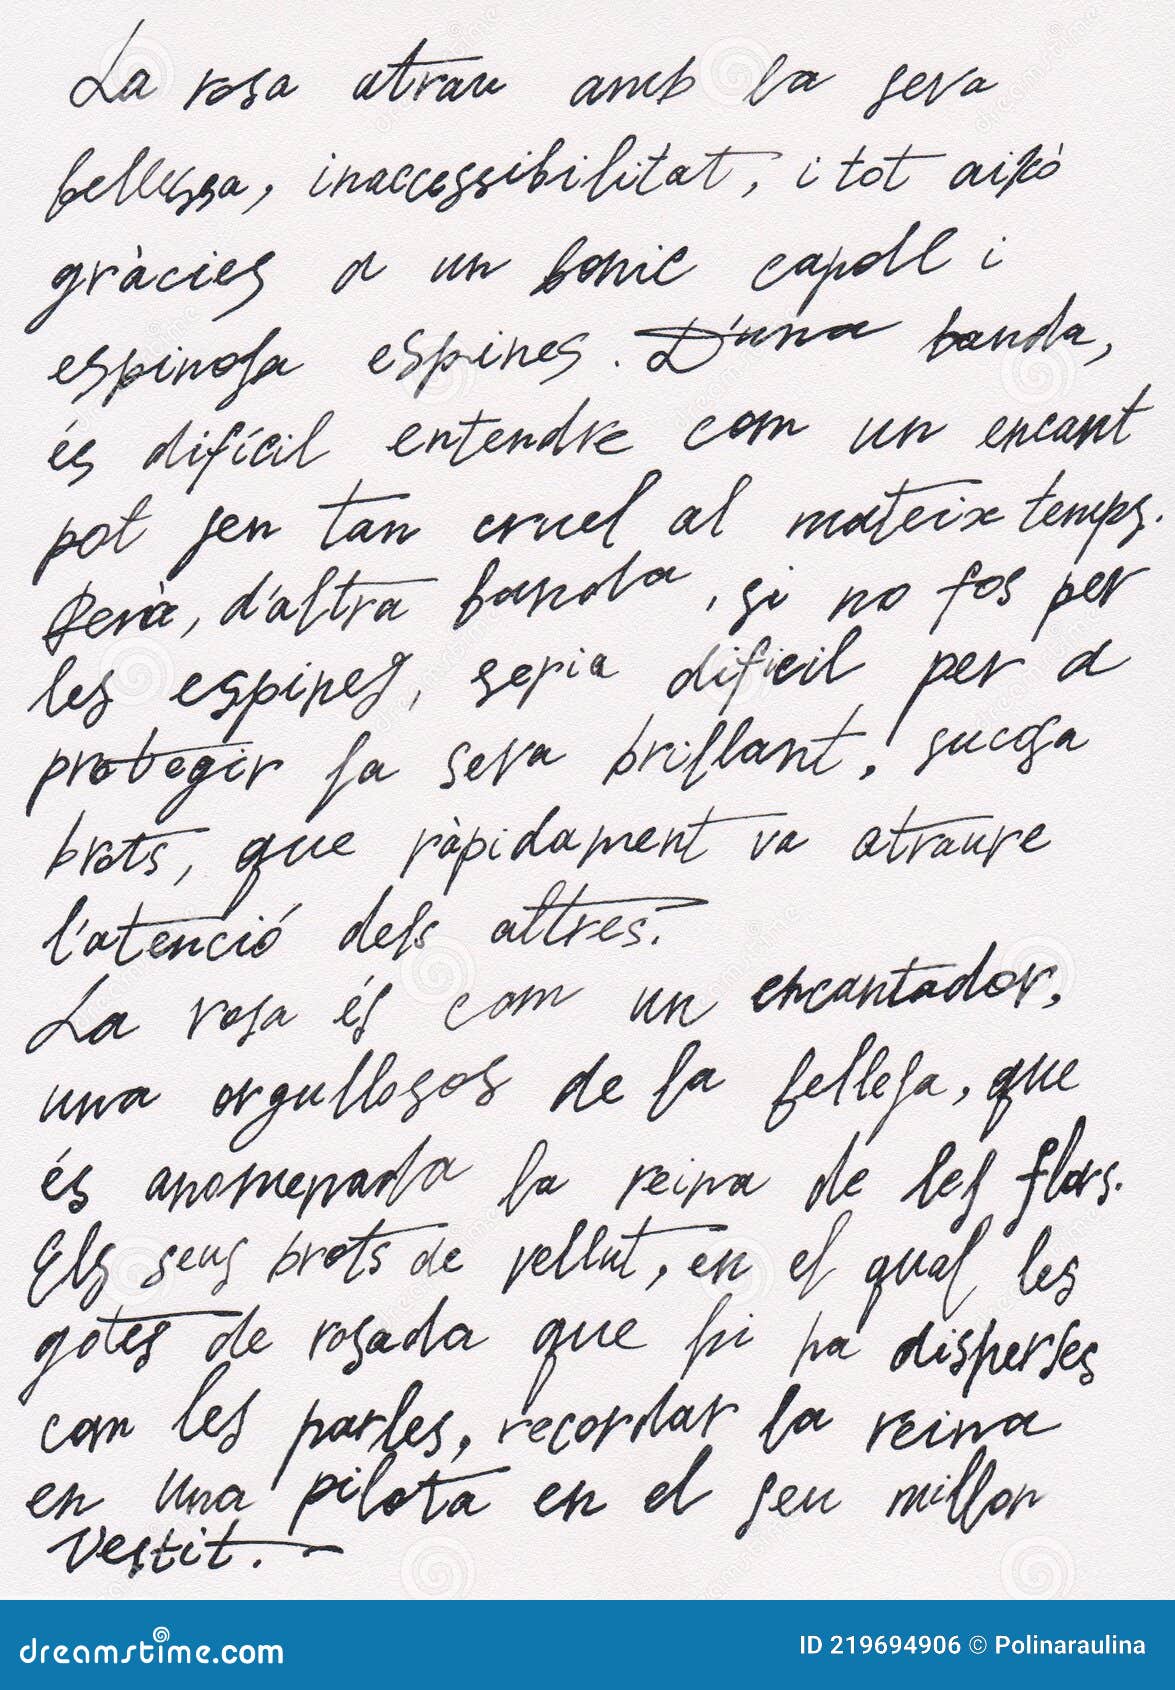 La rosa atrau amb la seva
bellessa, inaccessibilitat, i tot això
gràcies a un bonic capoll i
espinosa espines. D'una banda,
és difícil entendre com un encant
pot sen tan cruel al mateix temps.
Però, d'altra banda, si no fos per
les espines, seria dificil per a
protegir la seva brillant, sucosa
brots, que ràpidament va atraure
l'atenció dels altres.
La rosa és com un encantador,
una orgullosos de la bellesa, que
és anomenada la reina de les flors.
Els seus brots de vellut, en el qual les
gotes de rosada que hi ha disperses
com les parles, recordar la reina
en una pilota en el seu millor
vestit.
dreamstime.com
ID 219694906 © Polinaraulina